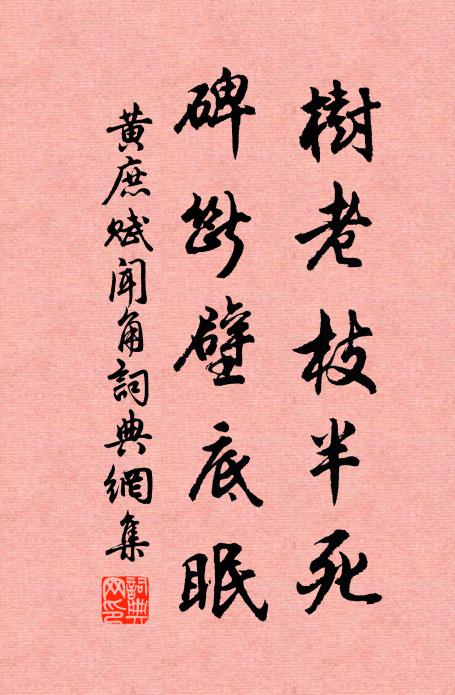 樹老枝半死
碑斷壁底眠
黃庶賦聞角詞典網集
詞典网印